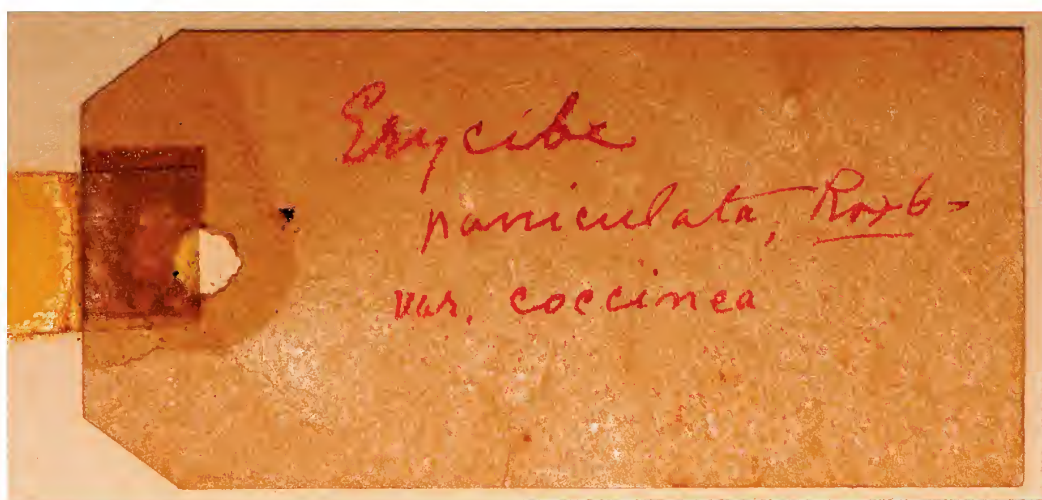 Erycibe
paniculata, Roxb-
var. coccinea